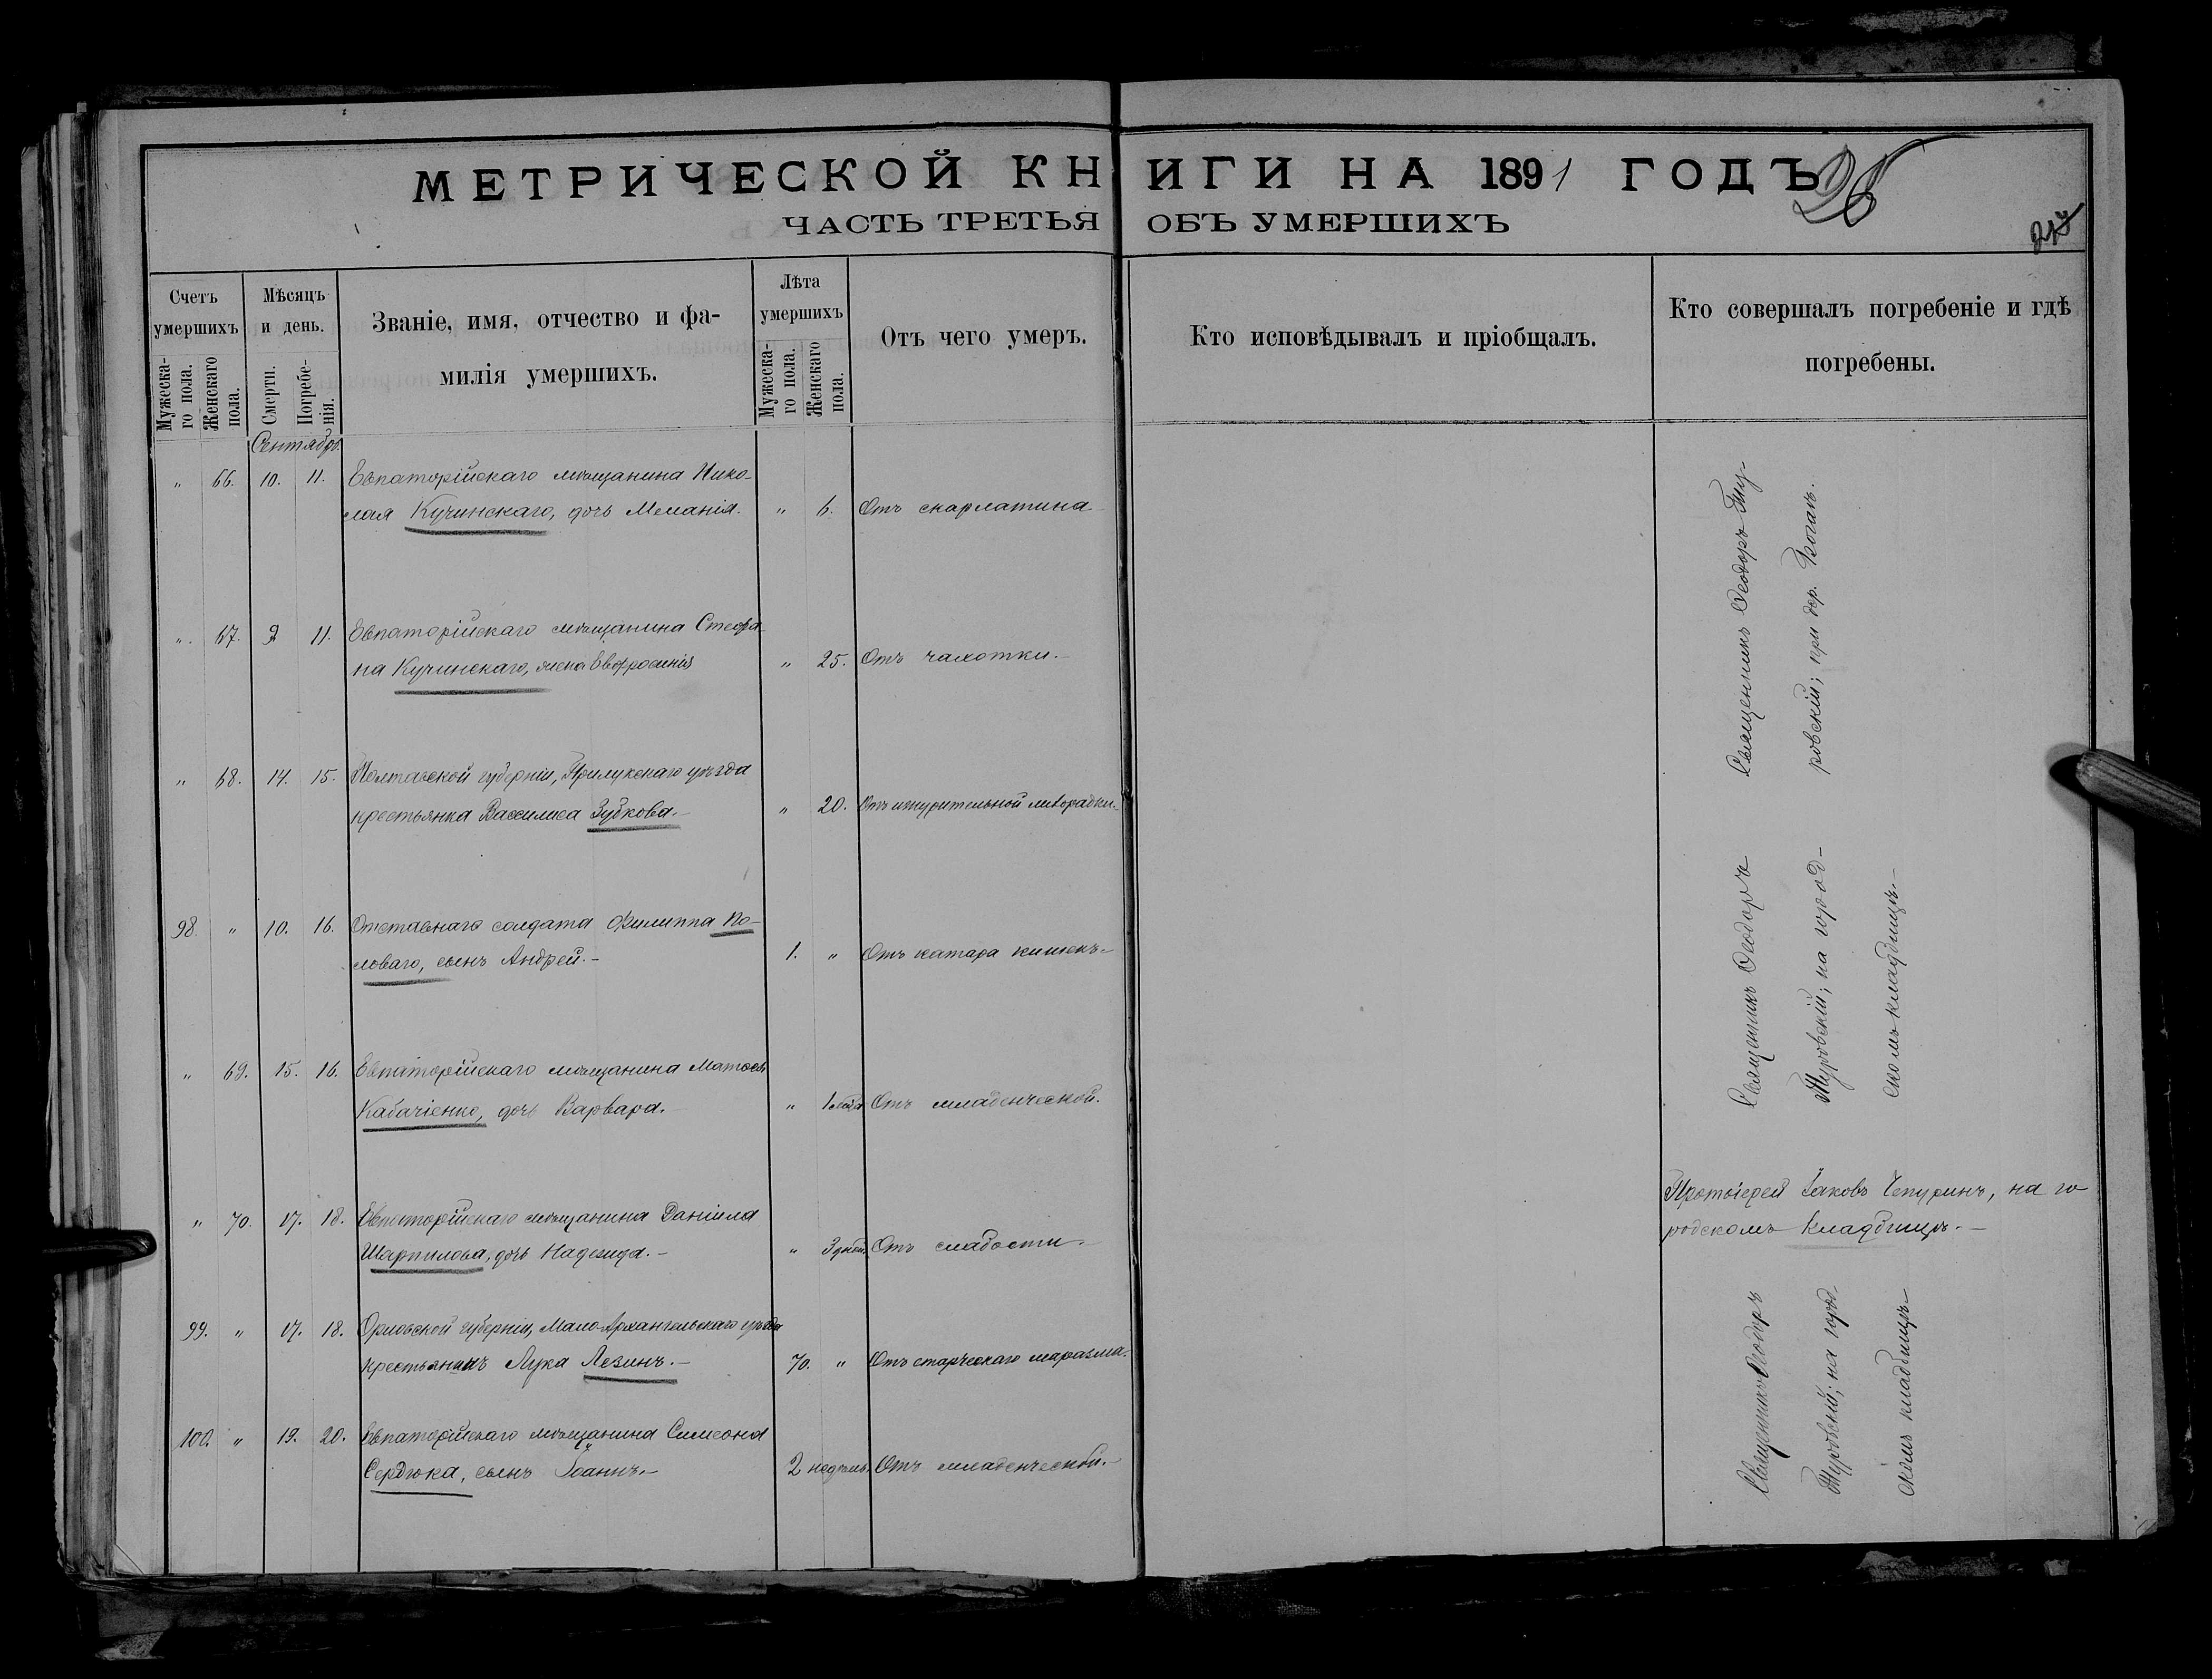 МЕТРИЧЕСКОЙ КНИГИ НА 1891 ГОДЪ
26
ЧАСТЬ ТРЕТЬЯ ОБЪ УМЕРШИХЪ
Счетъ умершихъ
Мужеска-го пола.
Женскаго пола.
Мѣсяцъ и день.
Смерти.
Погребе-нія.
Званіе, имя, отчество и фа-
милія умершихъ.
Лѣта умершихъ
Мужеска-го пола.
Женскаго пола.
Отъ чего умеръ.
Кто исповѣдывалъ и пріобщалъ.
Кто совершалъ погребеніе и гдѣ
погребены.
Сентябрь
" 66. 10. 11. Евпаторійскаго мѣщанина Нико-
лая Кучинскаго, дочь Меланія. " 6. Отъ скарлатина
Священникъ Ѳеодоръ Ту-
ровскій; при дер.
". 67. 9 11. Евпаторійскаго мѣщанина Стефа-
на Кучинскаго, жена Евфросинія " 25. Отъ чахотки.-
" 68. 14. 15. Полтавской губерніи, Прилукскаго уѣзда
крестьянка Вассилиса Зубкова.- " 20. Отъ изнурительной лихорадки.-
98. " 10. 16. Отставнаго солдата Филиппа По-
ловаго, сынъ Андрей.- 1. " Отъ катара кишекъ-
Священникъ Ѳеодоръ
Туровскій; на город-
скомъ кладбищѣ.-
" 69. 15. 16. Евпаторійскаго мѣщанина Матвѣя
Кабачіенко, дочь Варвара.- " 1 года Отъ младенческой.
" 70. 17. 18. Евпаторійскаго мѣщанина Даніила
Шарпилова, дочь Надежда.- " 3 дней. Отъ слабости.-
Протоіерей Іаковъ Чепуринъ, на го-
родскомъ кладбищѣ.-
99. " 17. 18. Орловской губерніи, Мало-Архангельскаго уѣзда
крестьянинъ Лука Лезинъ.- 70. " Отъ старческаго маразма.
Священникъ Ѳеодоръ
Туровскій; на город-
скомъ кладбищѣ-
100. " 19. 20. Евпаторійскаго мѣщанина Симеона
Сердюка, сынъ Іоаннъ.- 2 недѣль. Отъ младенческой.-